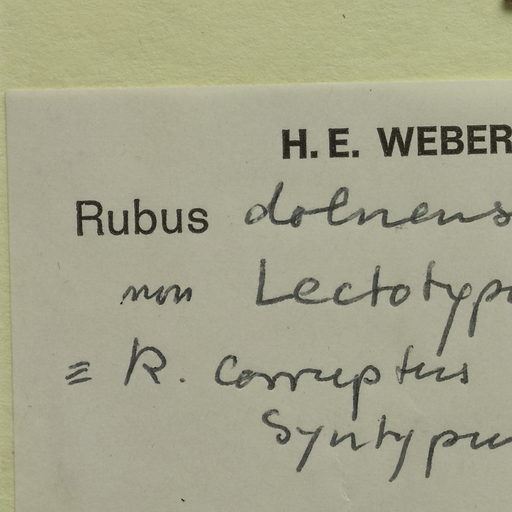 H. E. WEBER
Rubus dolnens
non Lectotyp
≡ R. corruptus
Syntypu